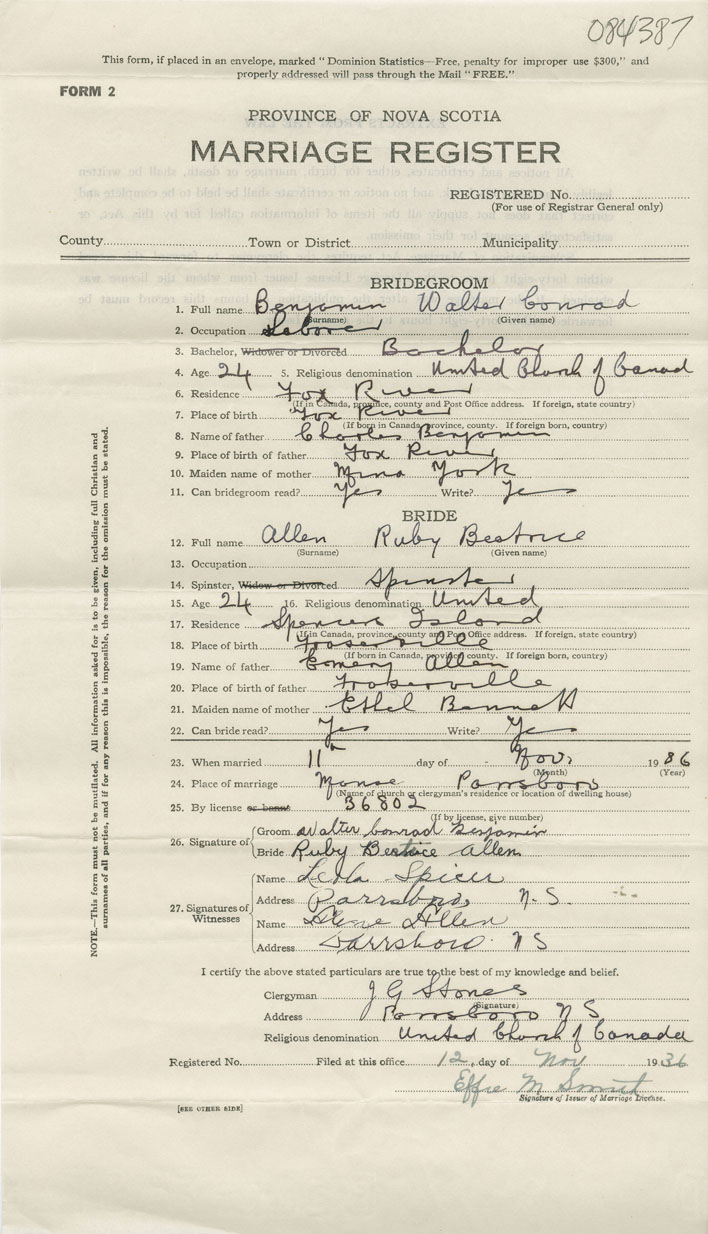 084387
This form, if placed in an envelope, marked "Dominion Statistics—Free, penalty for improper use $300," and
properly addressed will pass through the Mail "FREE."
FORM 2
PROVINCE OF NOVA SCOTIA
MARRIAGE REGISTER
REGISTERED No.
(For use of Registrar General only)
County Town or District Municipality
BRIDEGROOM
1. Full name Benjamin Walter Conrad
(Surname) (Given name)
2. Occupation Laborer
3. Bachelor, Widower or Divorced Bachelor
4. Age 24 5. Religious denomination United Church of Canad
6. Residence Fox River
(If in Canada, province, county and Post Office address. If foreign, state country)
7. Place of birth Fox River
(If born in Canada, province, county. If foreign born, country)
8. Name of father Charles Benjamin
9. Place of birth of father Fox River
10. Maiden name of mother Mina York
11. Can bridegroom read? Yes Write? Yes
BRIDE
12. Full name Allen Ruby Beatrice
(Surname) (Given name)
13. Occupation
14. Spinster, Widow or Divorced Spinster
15. Age 24 16. Religious denomination United
17. Residence Spencers Island
(If in Canada, province, county and Post Office address. If foreign, state country)
18. Place of birth Fraserville
(If born in Canada, province, county. If foreign born, country)
19. Name of father Emery Allen
20. Place of birth of father Fraserville
21. Maiden name of mother Ethel Bennett
22. Can bride read? Yes Write? Yes
23. When married 11th day of Nov. 1936
(Month) (Year)
24. Place of marriage Manse Parrsboro
(Name of church or clergyman's residence or location of dwelling house)
25. By license or banns 36802
(If by license, give number)
26. Signature of
Groom Walter Conrad Benjamin
Bride Ruby Beatrice Allen
27. Signatures of Witnesses
Name Leila Spicer
Address Parrsboro, N.S.
Name Allen
Address Parrsboro. N S
I certify the above stated particulars are true to the best of my knowledge and belief.
Clergyman J G Stones
(Signature)
Address Parrsboro N S
Religious denomination United Church of Canada
Registered No. Filed at this office 12 day of Nov 1936
Effie M Smith
Signature of Issuer of Marriage License.
[SEE OTHER SIDE]
NOTE.—This form must not be mutilated. All information asked for is to be given, including full Christian and
surnames of all parties, and if for any reason this is impossible, the reason for the omission must be stated.